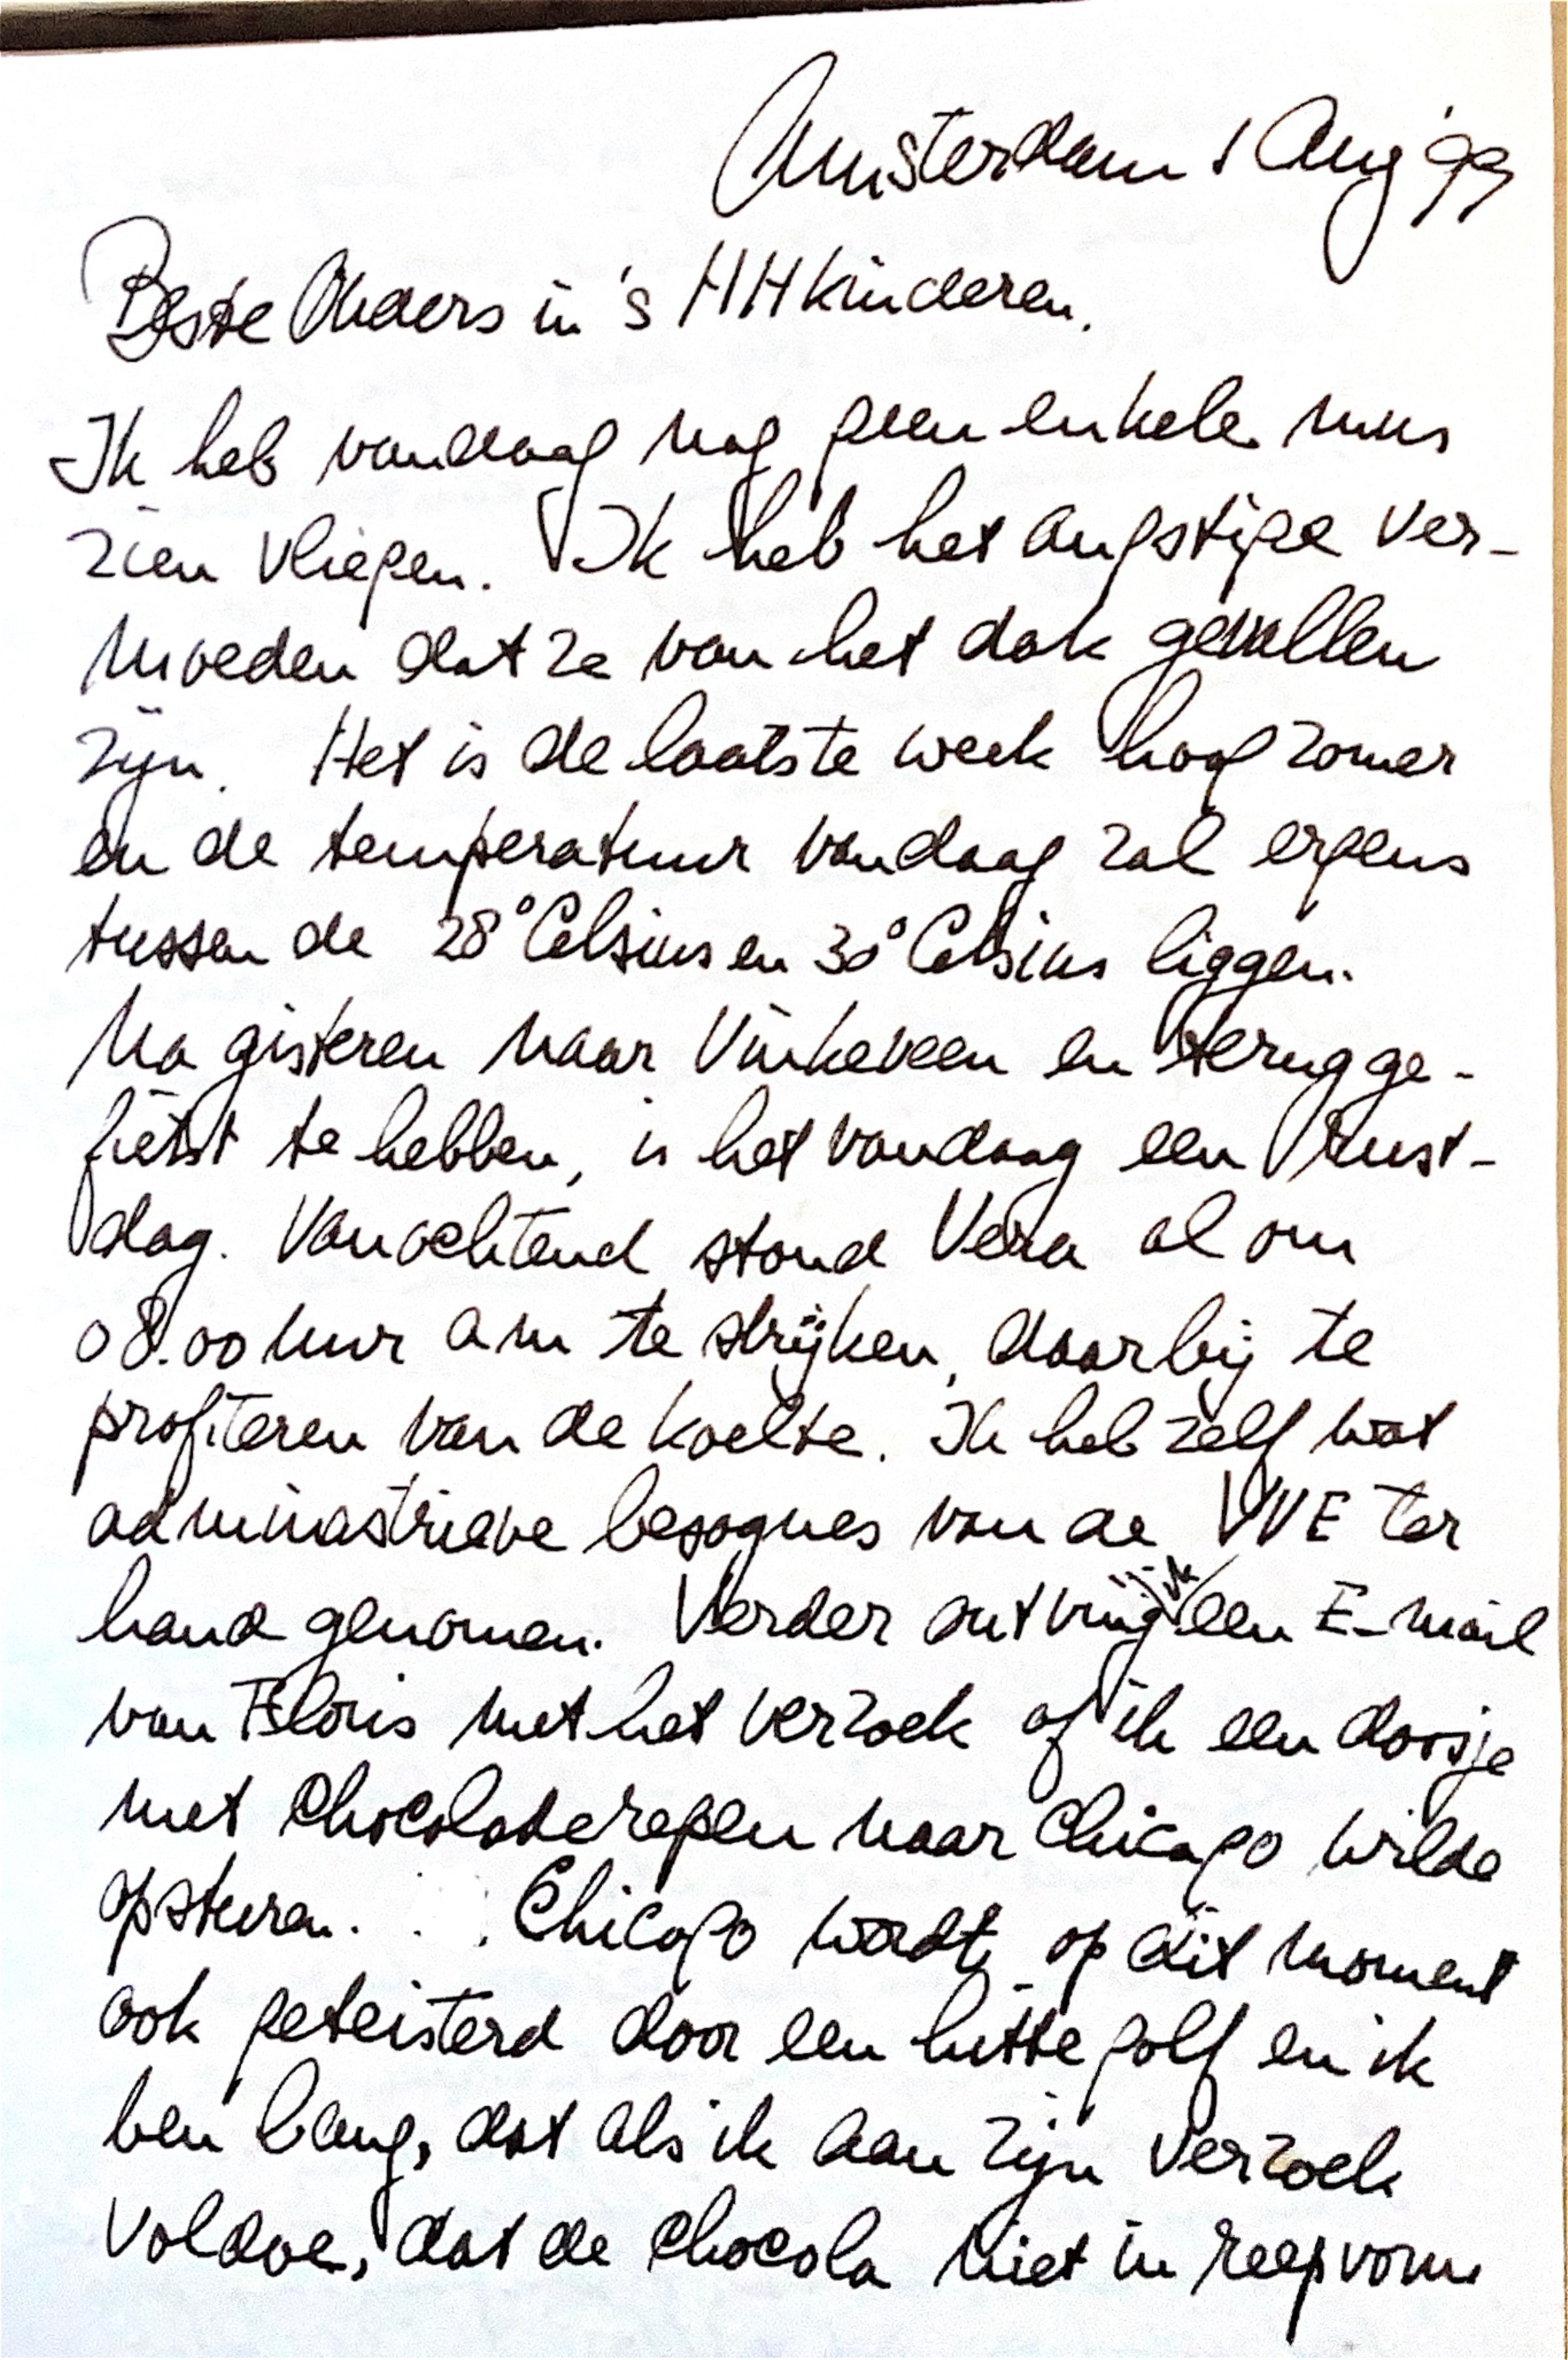 Amsterdam 1 Aug '99
Beste Ouders in 's HHkinderen.
Ik heb vandaag nog geen enkele mus
zien vliegen. Ik heb het angstige ver-
moeden dat ze van het dak gevallen
zijn. Het is de laatste week hoog zomer
en de temperatuur vandaag zal ergens
tussen de 28° Celsius en 30° Celsius liggen.
Na gisteren naar Vinkeveen en terug ge-
fietst te hebben, is het vandaag een rust-
dag. Vanochtend stond Vera al om
08.00 uur am te strijken, daarbij te
profiteren van de koelte. Ik heb zelf wat
administrieve besognes van de VVE ter
hand genomen. Verder ontving ik een E-mail
van Floris met het verzoek of ik een doosje
met chocoladerepen naar Chicago wilde
opsturen. . . Chicago wordt op dit moment
ook geteisterd door een hittegolf en ik
ben bang, dat als ik aan zijn verzoek
voldoe, dat de chocola niet in reepvorm